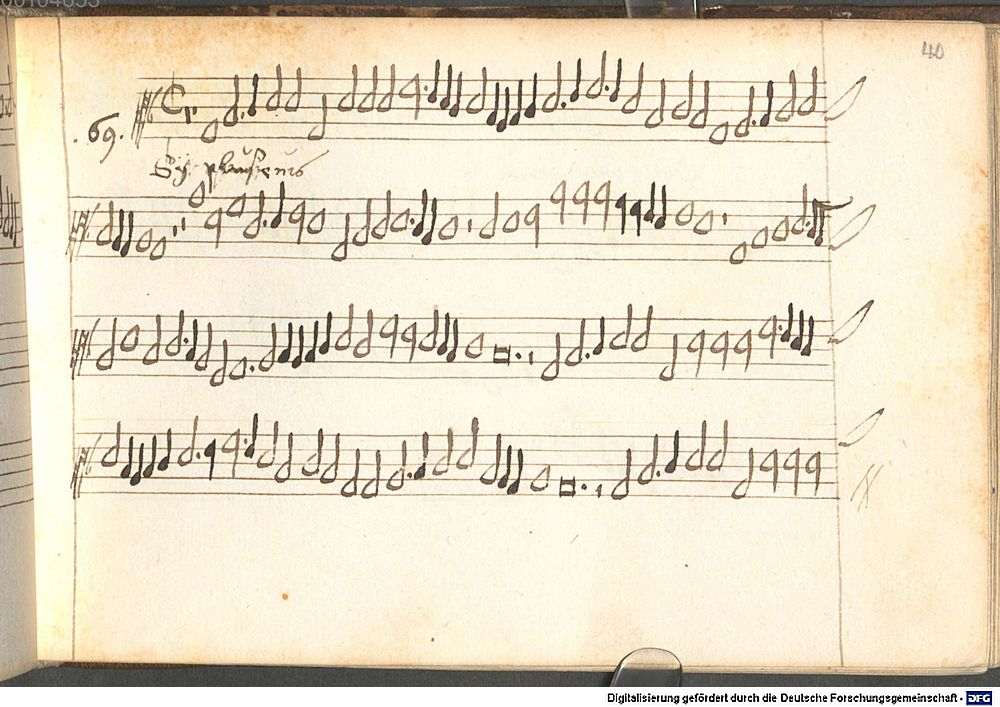 40
69.
Sy plausieurs
Digitalisierung gefördert durch die Deutsche Forschungsgemeinschaft - DFG